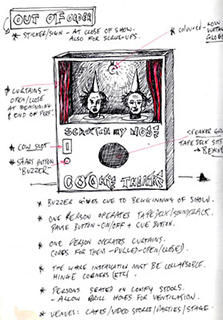 OUT OF ORDER
* STICKER/SIGN - AT CLOSE OF SHOW.
ALSO FOR SCREW-UPS.
* COLOURED
* CURTAINS -
OPEN/CLOSE
AT BEGINNING
& END OF PERF.
SCRATCH MY NOSE
* COIN SLOT
* START BUTTON
'BUZZER'
TAPE DECK SITS
THEATRE
* BUZZER GIVES CUE TO BEGINNING OF SHOW.
* ONE PERSON OPERATES TAPE DECK/SOUNDTRACK.
PAUSE BUTTON - ON/OFF + CUE BUTTON.
* ONE PERSON OPERATES CURTAINS.
CORDS FOR THEM - PULLED - OPEN/CLOSE).
* THE WHOLE INSTALLATION MUST BE COLLAPSABLE.
HINGE CORNERS (ETC)
* PERSONS SEATED ON COMFY STOOLS.
- ALLOW DRILL HOLES FOR VENTILATION.
* VENUES: CAFES/VIDEO STORES/PARTIES/STAGE.